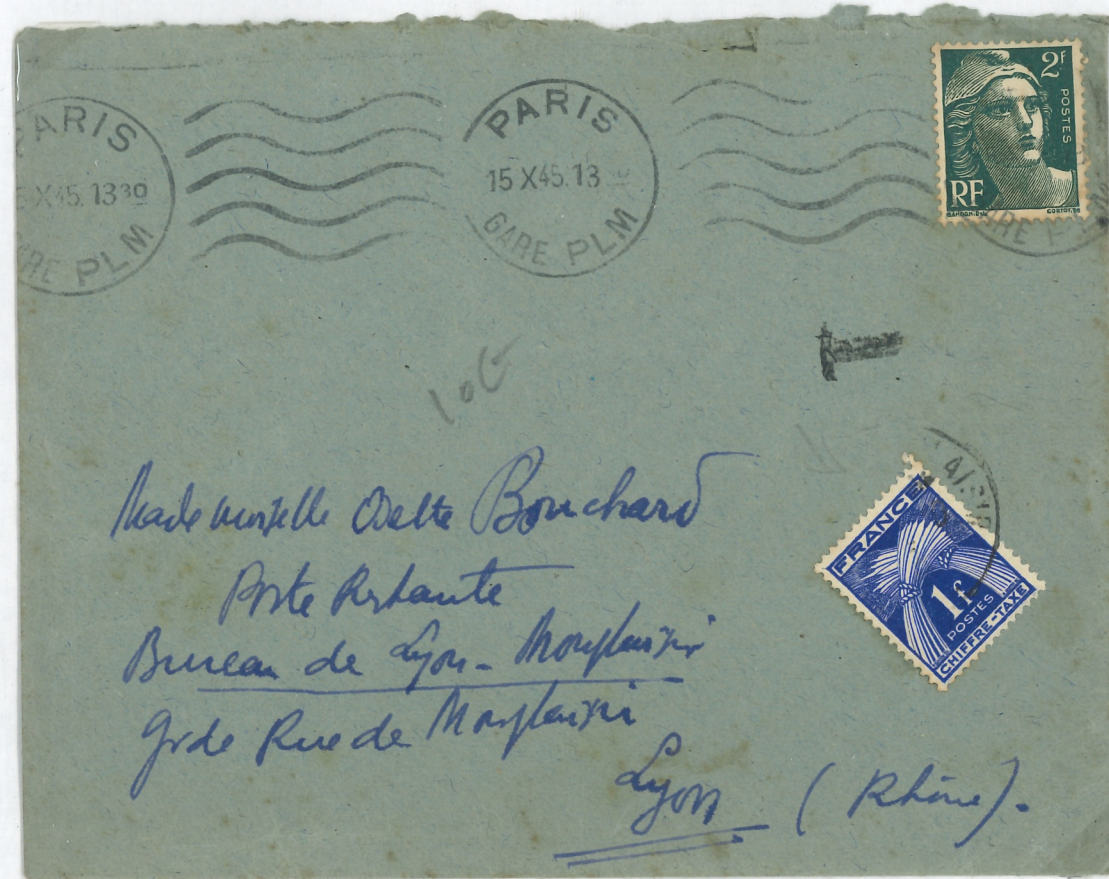 PARIS
X45. 1330
GARE PLM
PARIS
15 X45. 13
GARE PLM
2F
POSTES
RF
GANDON. DEL.
CORTOT. SC
T
Mademoiselle Odette Bouchard
Poste Restante
Bureau de Lyon - Monplaisir
Grde Rue de Monplaisir
Lyon (Rhône).
FRANCE
1f
POSTES
CHIFFRE-TAXE